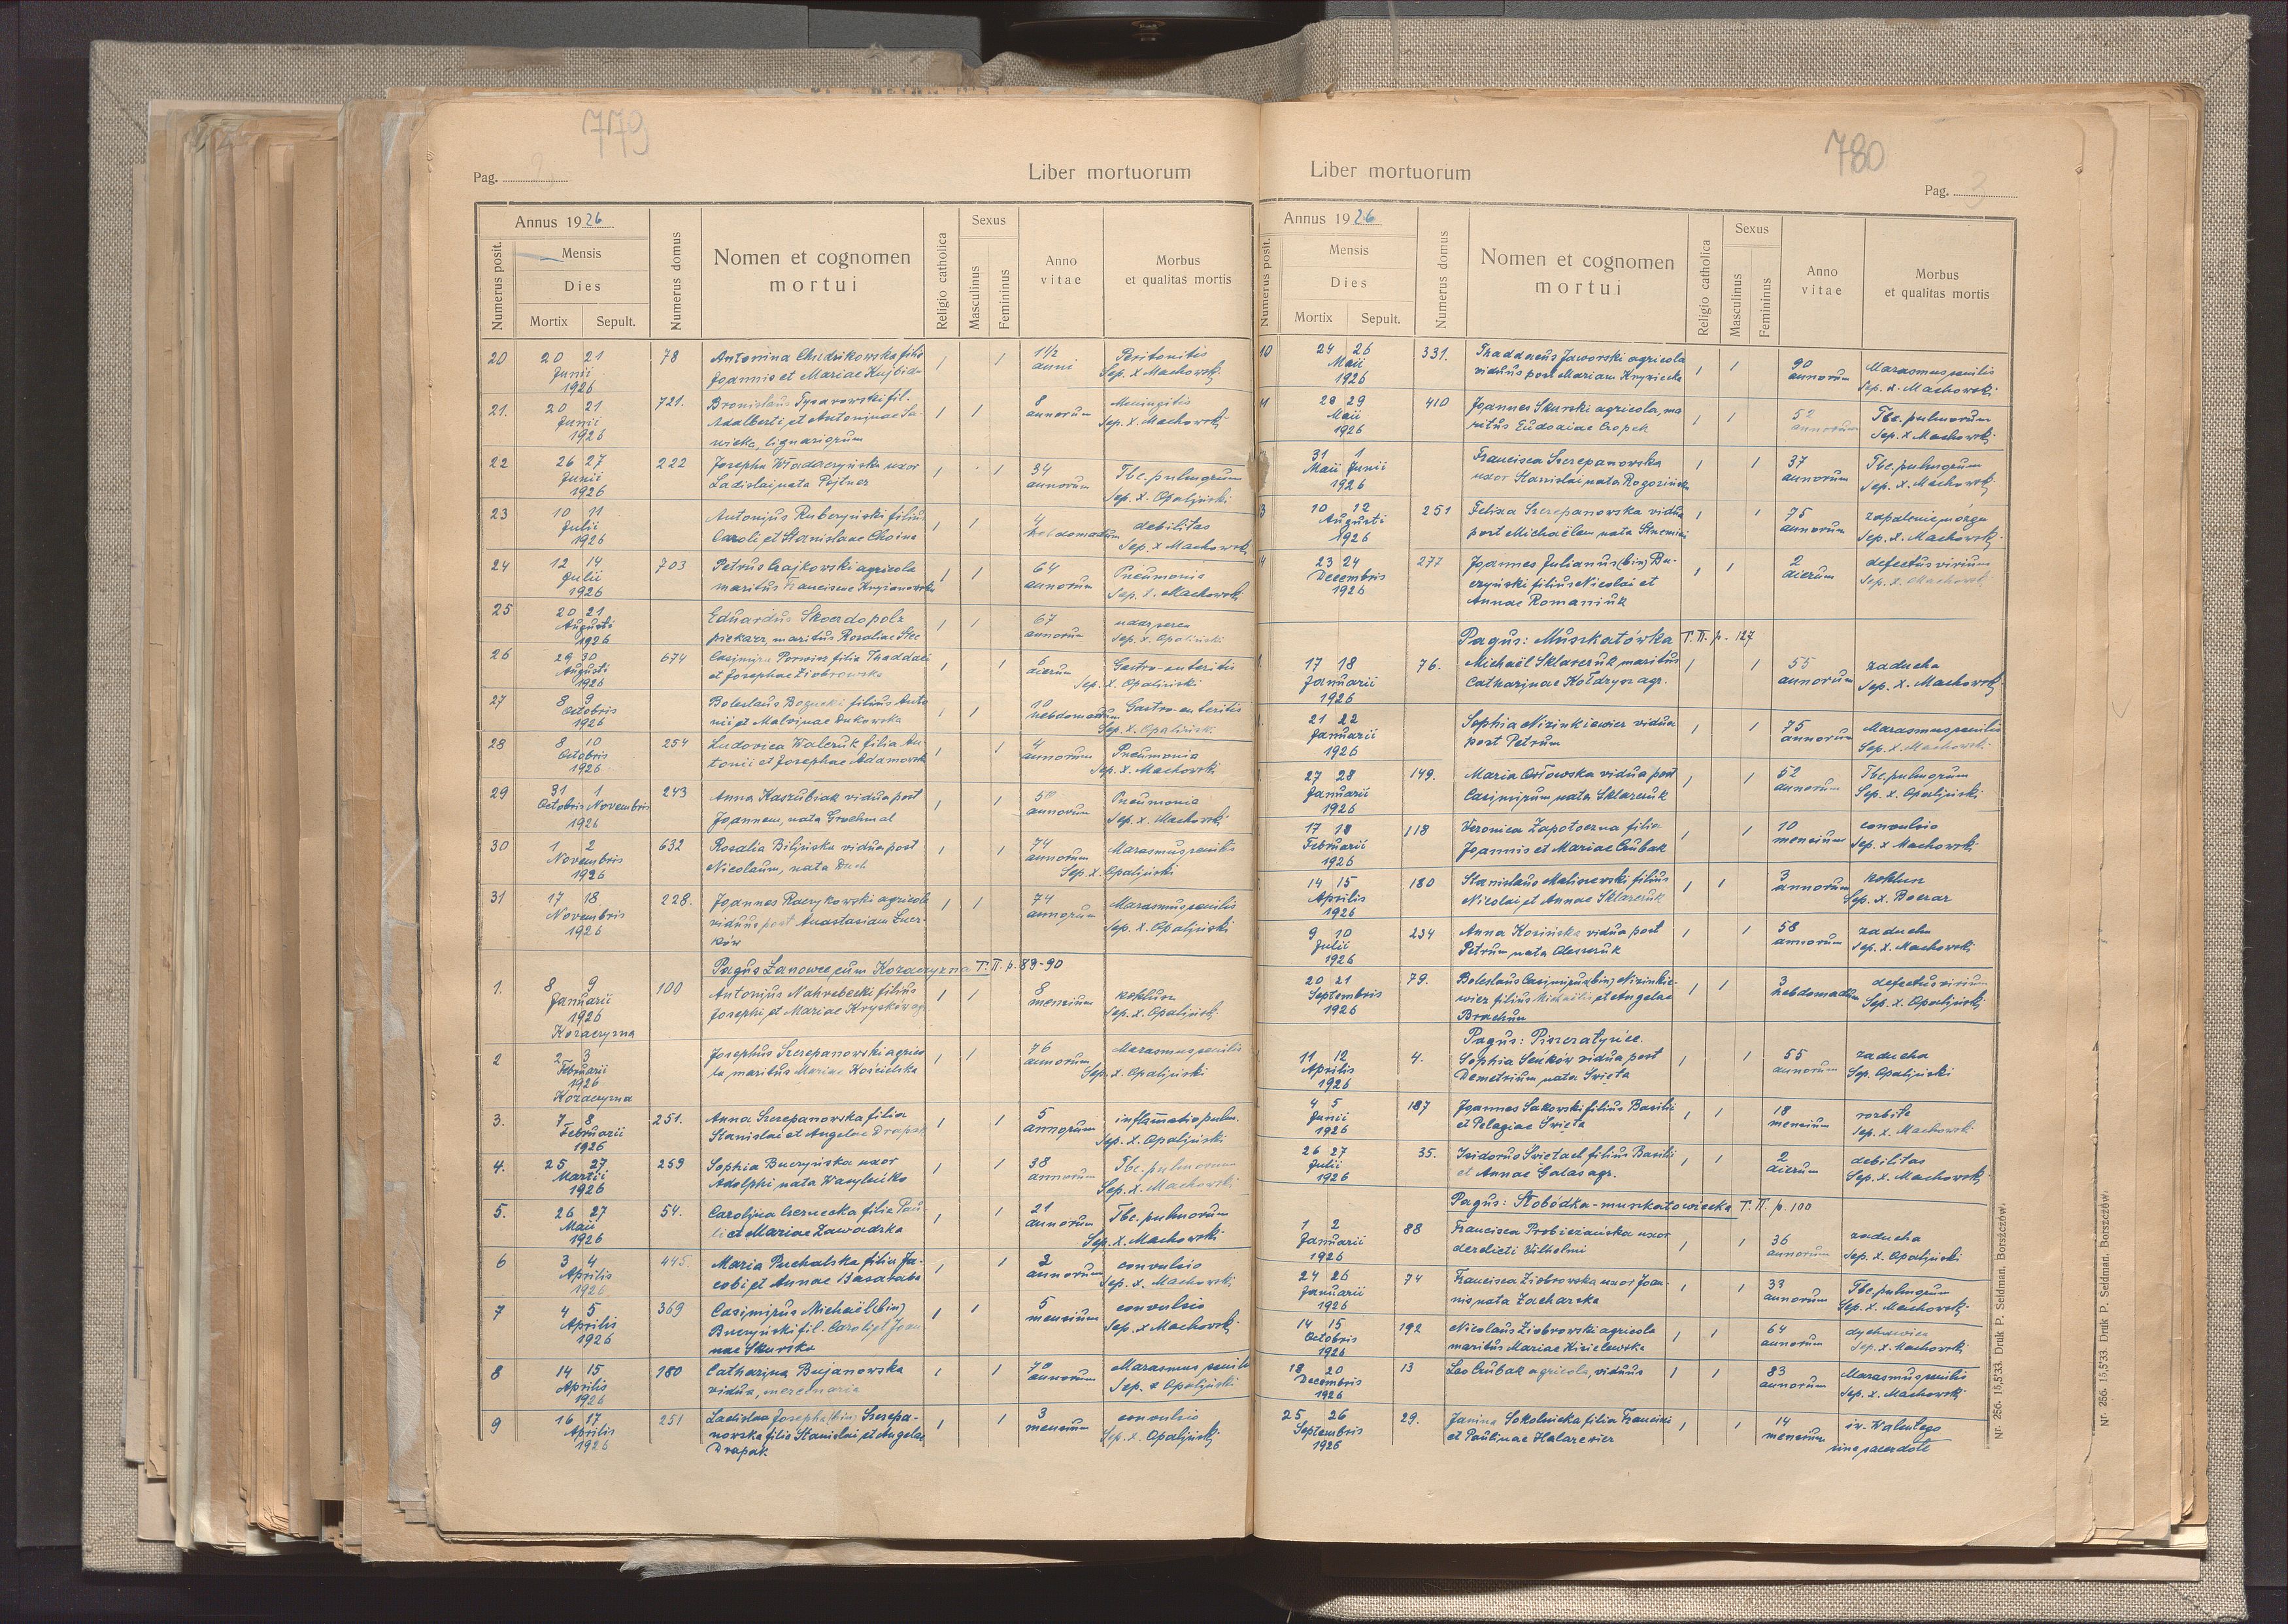 779
Pag.
Liber mortuorum
Annus 1926
Numerus posit.
Mensis
Dies
Mortix Sepult.
Numerus domus
Nomen et cognomen
mortui
Religio catholica
Sexus
Masculinus
Femininus
Anno
vitae
Morbus
et qualitas mortis
20 20 21 78 Antonina Chudzikowska filia 1 1 1 1/2 Peritonitis
Junii Joannis et Mariae anni Sep. X Machowski
1926
21. 20 21 721. Bronislaus fil. 1 1 8 Meningitis
Junii Adalberti et Antoninae Sa- annorum Sep. X. Machowski
1926 wicka, lignariorum
22 26 27 222 Josepha uxor 1 1 34 Tbc. pulmorum
Junii Ladislai nata Pojtner annorum Sep. X. Opaliński
1926
23 10 11 Antonius Ruberyński filius 1 1 4 debilitas
Julii Caroli et Stanislaae Choina hebdomadum Sep. X Machowski
1926
24 12 14 703 Petrus Czajkowski agricola 1 1 64 Pneumonia
Julii maritus Franciscae annorum Sep. X. Machowski
1926
25 20 21 Eduardus Skoerdopolz 1 1 67
Augusti piekarz, maritus Rosaliae Stec annorum Sep. X. Opaliński
1926
26 29 30 674 Casimira Porwisz filia Thaddaei 1 1 6 Gastro-enteritis
Augusti et Josephae Ziobrowska dierum Sep. X. Opaliński
1926
27 8 9 Boleslaus Bogucki filius Anto 1 1 10 Gastro-enteritis
Octobris nii et Malvinae Dukowska hebdomadum Sep. X. Opaliński
1926
28 8 10 254 Ludovica Walczuk filia An 1 1 4 Pneumonia
Octobris tonii et Josephae Adamowska annorum Sep. X. Machowski
1926
29 31 1 243 Anna Kaszubiak vidua post 1 1 50 Pneumonia
Octobris Novembris Joannem, nata Grochmal annorum Sep. X. Machowski
1926
30 1 2 632 Rosalia Bilińska vidua post 1 1 74 Marasmus senilis
Novembris Nicolaum, nata Duch annorum Sep. X. Opaliński
1926
31 17 18 228. Joannes Raczykowski agricola 1 1 74 Marasmus senilis
Novembris viduus post Anastasiam annorum Sep. X. Opaliński
1926
Pagus Lanowce cum Kozaczyzna T. II. p. 89-90
1. 8 9 100 Antonius Nahrebecki filius 1 1 8 koklusz
Januarii Josephi et Mariae Kryśków agr. mensium Sep. X. Opaliński
1926
Kozaczyzna
2 2 3 Josephus Szczepanowski agrico 1 1 76 Marasmus senilis
Februarii la, maritus Mariae Kościelska annorum Sep. X. Opaliński
1926
Kozaczyzna
3. 7 8 251. Anna Szczepanowska filia 1 1 5 inflamatio pulm.
Februarii Stanislai et Angelae Drapak annorum Sep. X. Opaliński
1926
4. 25 27 259 Sophia Buczyńska uxor 1 1 38 Tbc. pulmorum
Martii Adolphi nata Wasyleńko annorum Sep. X. Machowski
1926
5. 26 27 54. Carolina Czernecka filia Pau 1 1 21 Tbc. pulmorum
Maii li et Mariae Zawadzka annorum Sep. X. Machowski
1926
6 3 4 445. Maria Puchalska filia Ja- 1 1 2 convulsio
Aprilis cobi et Annae Basaraba annorum Sep. X. Machowski
1926
7 4 5 369 Casimirus Michaël (bin) 1 1 5 convulsio
Aprilis Buczyński fil. Caroli et Joan mensium Sep. X Machowski
1926 nae Skurska
8 14 15 180 Catharina Bujanowska 1 1 70 Marasmus senilis
Aprilis vidua, mercenaria annorum Sep. X Opaliński
1926
9 16 17 251 Ladislaa Josepha (bin) Szczepa- 1 1 3 convulsio
Aprilis nowska filia Stanislai et Angelae mensium Sep. X. Opaliński
1926 Drapak
780
Liber mortuorum
Pag. 3
Annus 1926
Numerus posit.
Mensis
Dies
Mortix Sepult.
Numerus domus
Nomen et cognomen
mortui
Religio catholica
Sexus
Masculinus
Femininus
Anno
vitae
Morbus
et qualitas mortis
10 24 26 331. Thaddaeus Jaworski agricola 1 1 90 Marasmus senilis
Maii viduus post Mariam annorum Sep. X. Machowski
1926
11 28 29 410 Joannes Skurski agricola, ma 1 1 52 Tbc. pulmorum
Maii ritus Eudoxiae Cropek annorum Sep. X Machowski
1926
31 1 Francisca Szczepanowska 1 1 37 Tbc. pulmorum
Maii Junii uxor Stanislai nata Rogozińska annorum Sep. X. Machowski
1926
3 10 12 251 Felixa Szczepanowska vidua 1 1 75 zapalenie mózgu
Augusti post Michaëlem nata annorum Sep. X. Machowski
1926
4 23 24 277 Joannes Julianus (bin) Bu- 1 1 2 defectus virium
Decembris czyński filius Nicolai et dierum Sep. X. Machowski
1926 Annae Romaniuk
Pagus: Muszkatówka T. II. p. 127
17 18 76. Michaël Sklarczuk maritus 1 1 55 zaducha
Januarii Catharinae Kołdrysz agr. annorum Sep. X. Machowski
1926
21 22 Sophia Nizinkiewicz vidua 1 1 75 Marasmus senilis
Januarii post Petrum annorum Sep. X. Machowski
1926
27 28 149. Maria Orłowska vidua post 1 1 52 Tbc. pulmorum
Januarii Casimirum nata Sklarczuk annorum Sep. X. Opaliński
1926
17 18 118 Veronica Zapotoczna filia 1 1 10 convulsio
Februarii Joannis et Mariae Czubak mensium Sep. X Machowski
1926
14 15 180 Stanislaus Maliszewski filius 1 1 3 koklusz
Aprilis Nicolai et Annae Sklarczuk annorum Sep. X. Boczar
1926
9 10 234 Anna Kosińska vidua post 1 1 58 zaducha
Julii Petrum nata Oleszczuk annorum Sep. X. Machowski
1926
20 21 79. Boleslaus Casimirus (bin) Nizinkie- 1 1 3 defectus virium
Septembris wicz filius Michaëlis et Angelae hebdomadum Sep. X. Opaliński
1926 Brachun
Pagus: Piszczatyńce.
11 12 4. Sophia Seńków vidua post 1 1 55 zaducha
Aprilis Demetrium nata Swięta annorum Sep. Opaliński
1926
4 5 187 Joannes Sakowski filius Basilii 1 1 18 rozbite
Junii et Pelagiae Swięta mensium Sep. X. Machowski
1926
26 27 35. Isidorus Swietach filius Basilii 1 1 2 debilitas
Julii et Annae Galas agr. dierum Sep. X. Machowski
1926
Pagus: Słobódka-muszkatowiecka T. II. p. 100
1 2 88 Francisca Probieżańska uxor 1 1 36 zaducha
Januarii derelicti Wilhelmi annorum Sep. X. Opaliński
1926
24 26 74 Francisca Ziobrowska uxor Joan- 1 1 33 Tbc. pulmorum
Januarii nis, nata Zacharska annorum Sep. X. Machowski
1926
14 15 192 Nicolaus Ziobrowski agricola 1 1 64 dychawica
Octobris maritus Mariae Kisielewska annorum Sep. X. Machowski
1926
18 20 13 Leo Czubak agricola, viduus 1 1 83 Marasmus senilis
Decembris annorum Sep. X. Machowski
1926
25 26 29. Janina Sokolnicka filia Francisci 1 1 14 św. Walentego
Septembris et Paulinae Halarewicz mensium sine sacerdote
1926
Nr. 256. 15,5'33. Druk P. Seldman. Borszczów.
Nr. 256. 15,5'33. Druk P. Seldman. Borszczów.